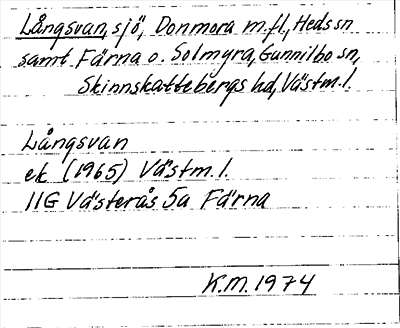 Långsvan, sjö, Donmora m.fl., Heds sn
samt Färna o. Solmyra, Gunnilbo sn,
Skinnskattebergs hd, Västm.l.
Långsvan
ek (1965) Västm.l.
11G Västerås 5a Färna
K.M. 1974